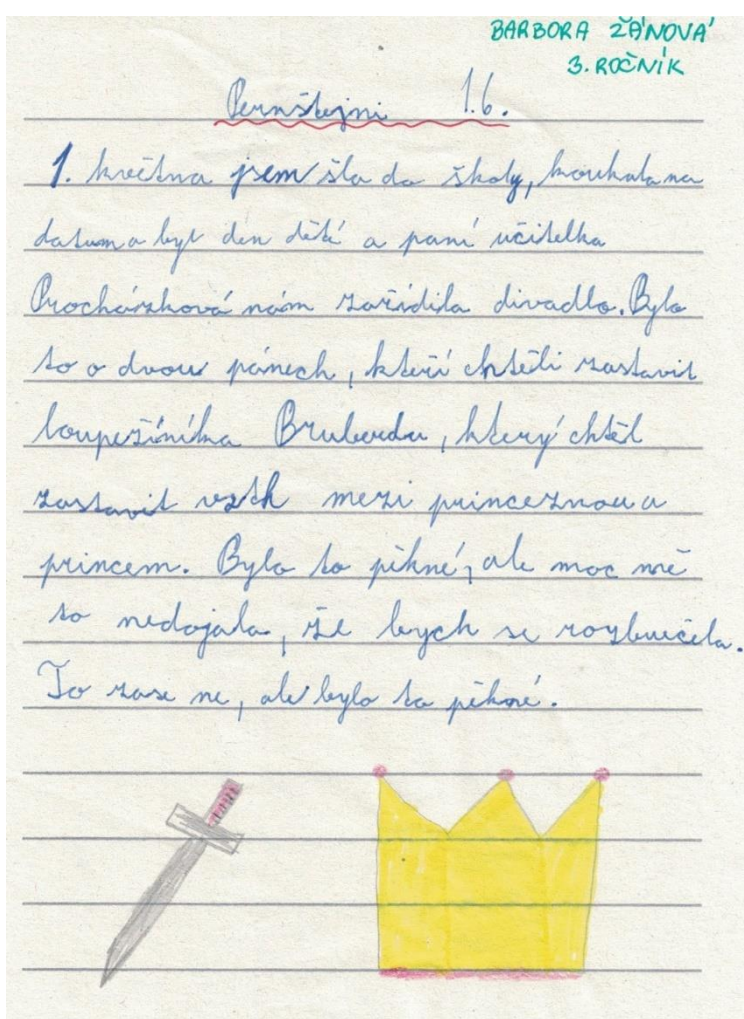 BARBORA ŽÁNOVÁ
3. ROČNÍK
Pernštejni 1.6.
1. května jsem šla do školy, koukala na
datum a byl den dětí a paní učitelka
Procházková nám zařídila divadlo. Bylo
to o dvou pánech, kteří chtěli zastavit
loupežíníka Bruberda, který chtěl
zastavit vzth mezi princeznou a
princem. Bylo to pěkné, ale moc mě
to nedojala, že bych se rozbučela.
To zase ne, ale bylo to pěkné.